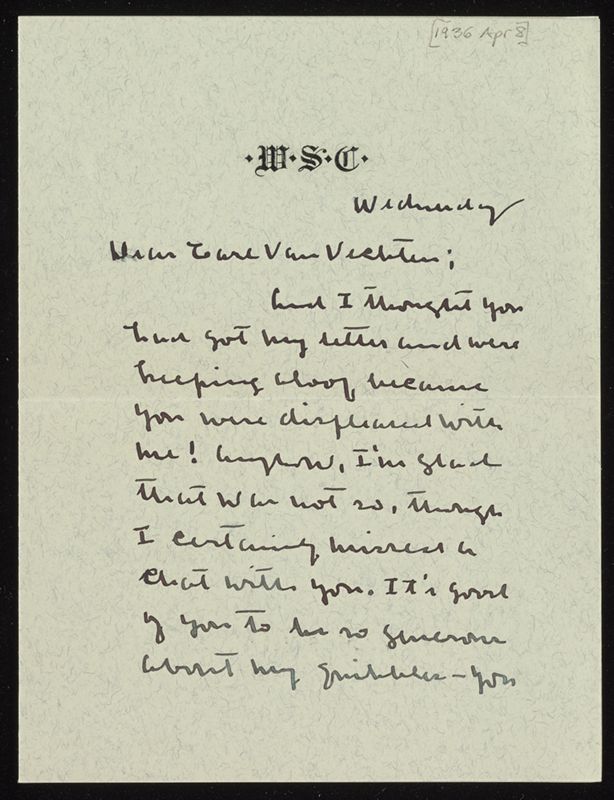 [1936 Apr 8]
·W·S·C·
Wednesday
Dear Carl Van Vechten;
And I thought you
had got my letter and were
keeping aloof because
you were displeased with
me! Anyhow, I'm glad
that was not so, though
I certainly missed a
chat with you. It's good
of you to be so generous
about my quibbles – you